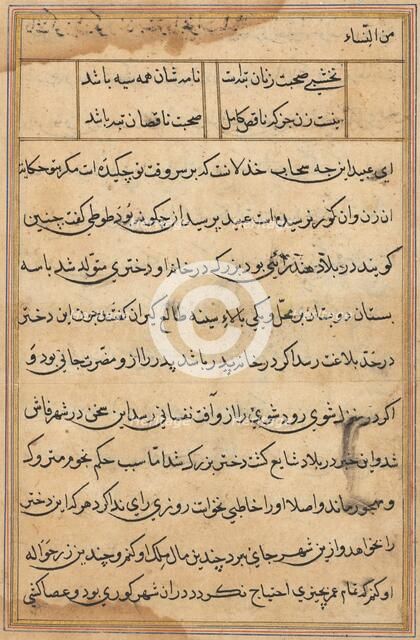 من النساء
نخشبی صحبت زنان بتر است نامه شان همه سیه باشد
نیست زن جز که ناقص کامل صحبت ناقصان تبه باشد
ای عبید این چه سحاب خذلانست که بر سر وقت تو چکیده است مگر بتو حکایت
ان زن وان کور نرسیده است عبید پرسید از چگونه بود طوطی گفت چنین
کویند در بلاد هند رائی بود بزرک در خانه او دختری متولد شد با سه
بستان دو پستان بمحل و یکی بالاء سینه طالع کیران گفتند چون این دختر
در حد بلاغت رسد اکر در خانه پدر باشد پدر را از و مضرت جانی بود و
اکر در خانه شوی رود شوی را از و آفت نفسانی رسد این سخن در شهر فاش
شد و این خبر در بلاد شایع کشت دختر بزرک شد اما سبب حکم نجوم متروک
و مهجور ماند و اصلا او را خاطبی نخواست روزی رای ندا کرد هر که این دختر
را بخواهد و ازین شهر جای برد چندین مال ملک او کنم و چندین زر حواله
او کنم که تمام عمر بچیزی احتیاج نکردد در ان شهر کوری بود و عصا کشی